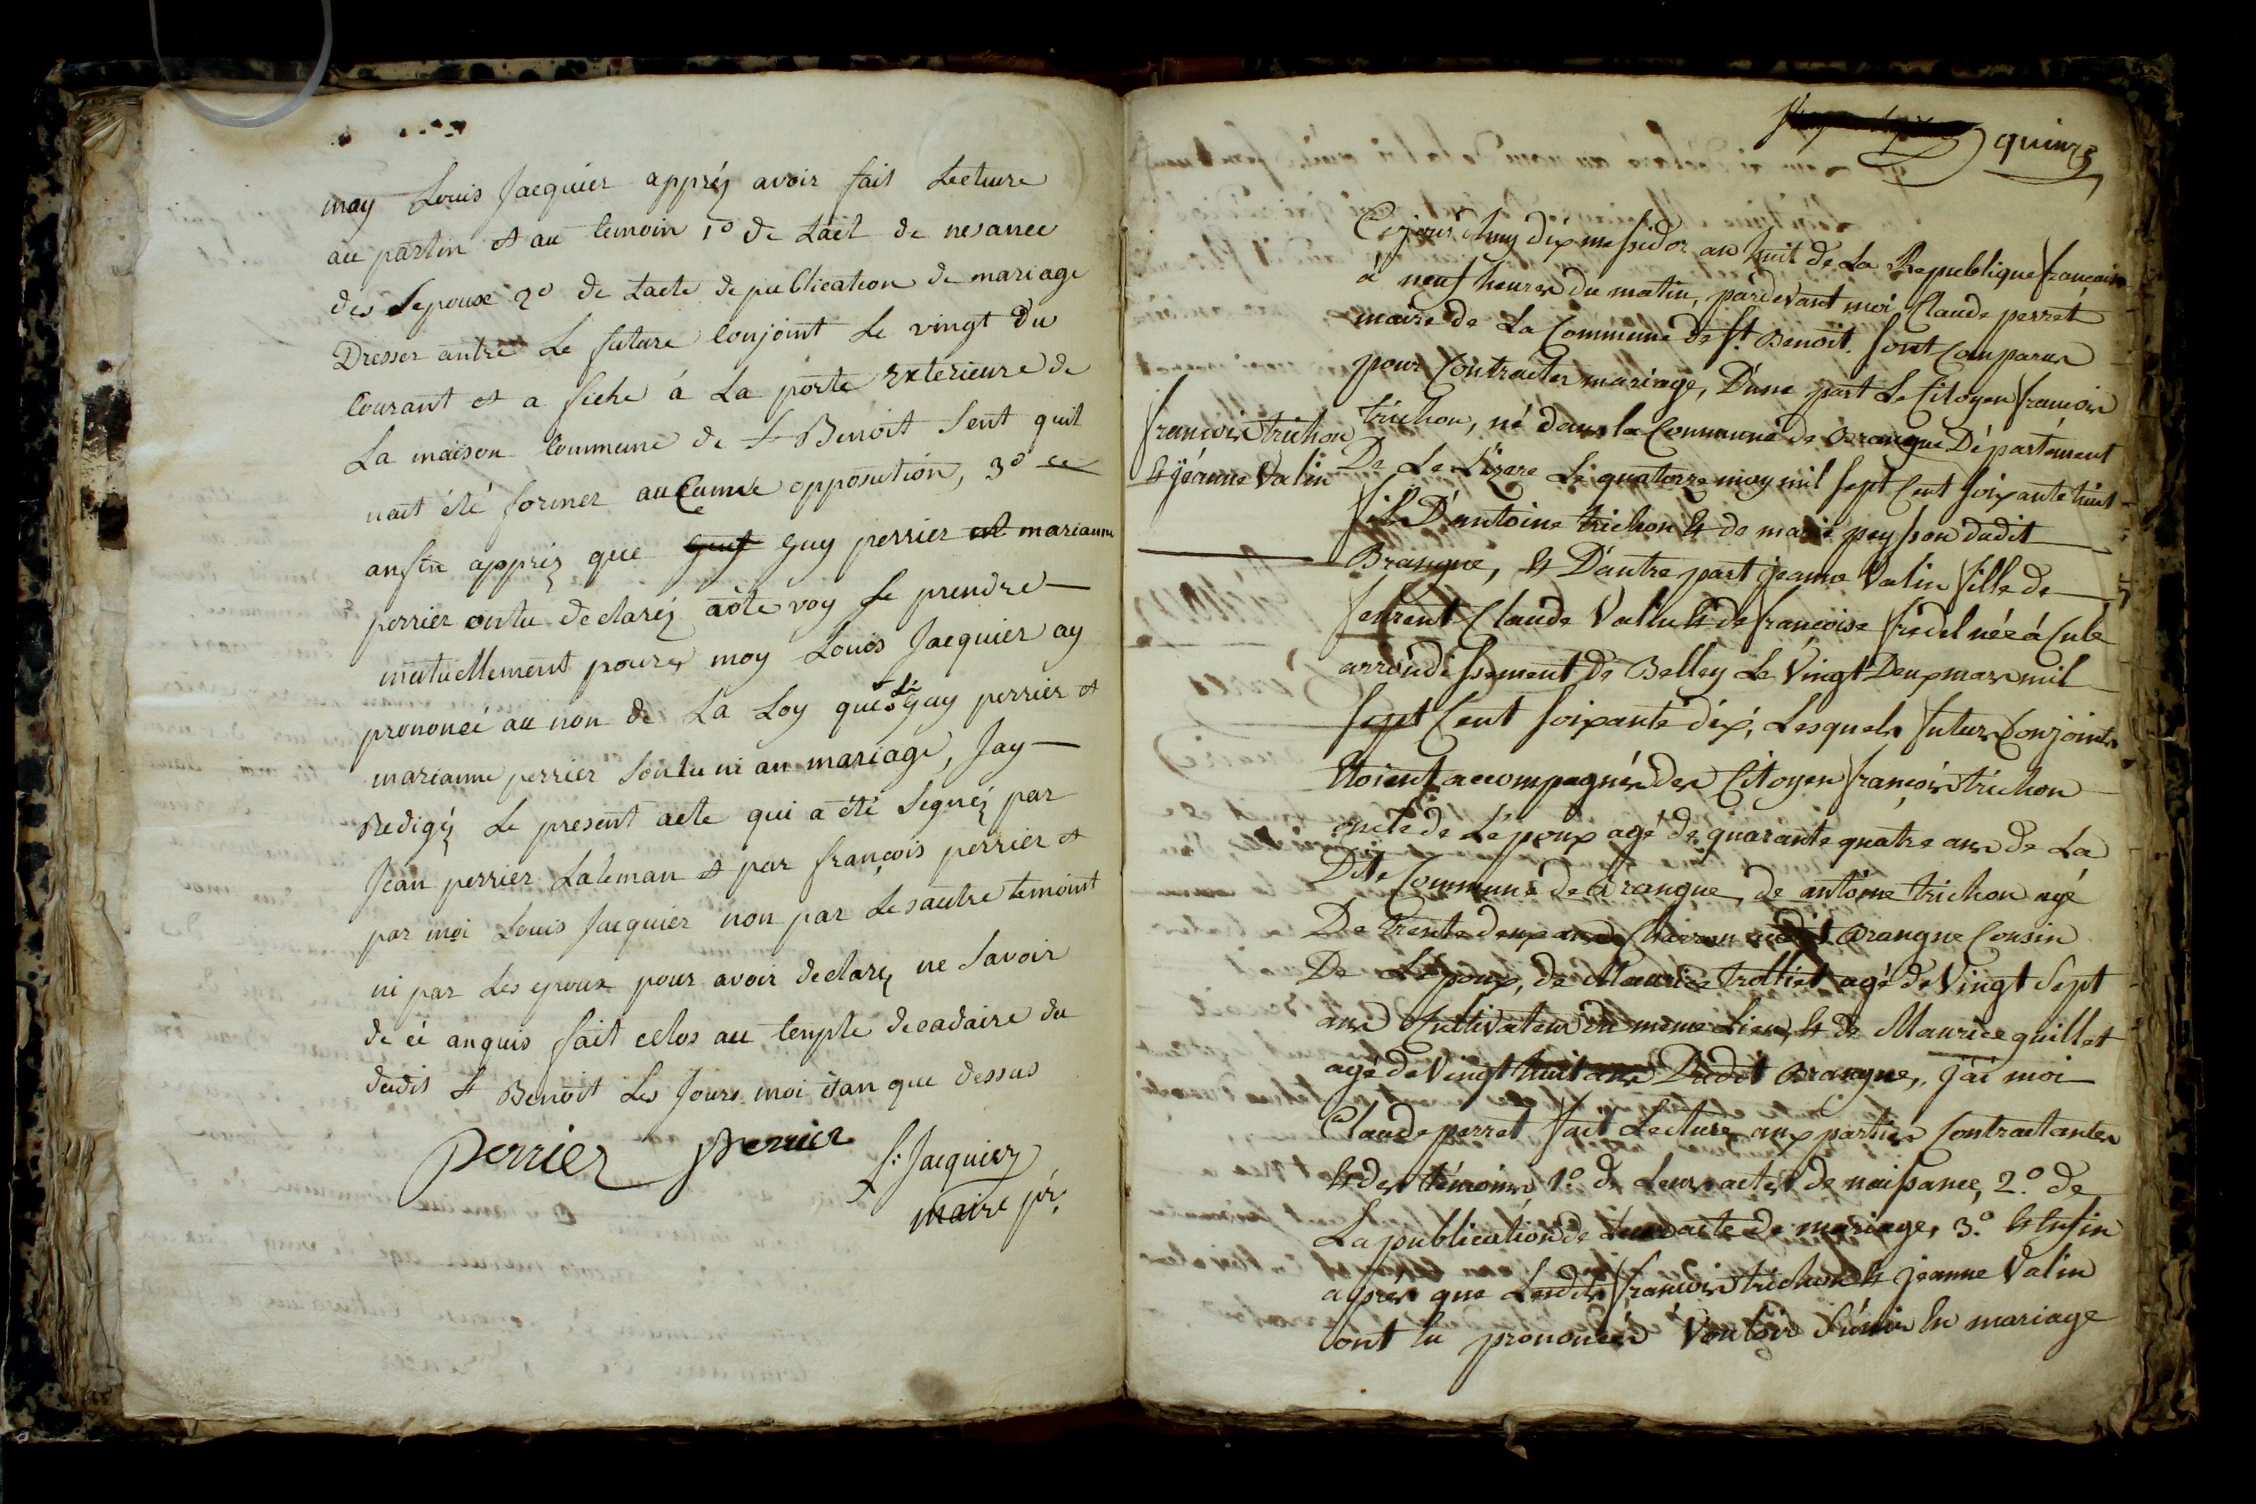 may Louis Jacquier apprés avoir fait Lecture
au partin et au temoin 1º de Lact de nesance
des Sepoux 2º de Lacte de publication de mariage
Dresser antre Le future Conjoint Le vingt Du
Courant et a fiche á La porte Exterieure de
La maison Commune de St Benoit Sent quil
nait été former aucunne opposution, 3º ce
anfin apprés que Guy perrier et marianne
perrier ontu declaréz aôte voy Se prendre
mutuellement pourx moy Louos Jacquier ay
prononcé au non de La Loy que Le Guy perrier et
marianne perrier Sontu ni an mariage, Jay
Redigéz Le present acte qui a été Segnéz par
Jean perrier Laleman et par françois perrier et
par moi Louis Jacquier non par Les autre temoint
ni par Les epoux pour avoir declarez ne Savoir
de cé anquis fait cclos au temple decadaire du
dudit St Benoit Les Jours moi etan que dessus
Perrier Perrier
L: Jacquier
maire pr.
quinze
Cejourd'huy dix messidor an huit de La Republique française
à neuf heures du matin, pardevant moi Claude perret
maire de La Commune de St. Benoit. Sont Comparus
pour Contracter mariage, D'une part Le Citoyen françois
françois trichon
et jéanne Valin
trichon, né dans la Commune de Brangue Département
De Le L'izere Le quatorze may mil Sept Cent Soixante huit
fils D'antoine trichon et de marie peysson dudit
Brangue, et D'autre part jeanne Valin fille de
feu Claude Valin et de françoise fredel née à Cule
arrondissement de Belley Le Vingt Deux mars mil
Sept Cent Soixante dix, Lesquels futurs Conjoints
Etoient accompagnés des Citoyen françois trichon
oncle de L'époux agé de quarante quatre ans de La
Dite Commune de Brangue, de antoine trichon agé
De trente deux ans Brangue Cousin
De Lepoux, de Maurice trolliet agé de Vingt Sept
ans Cultivateur du meme Lieu, et de Maurice quillet
agé de Vingt huit ans Dudit Brangue, j'ai moi
Claude perret fait Lecture aux parties Contractantes
et des témoins 1.º de Leurs actes de naissance, 2.º de
La publication de Leur acte de mariage, 3.º et Enfin
après que Lesdits françois trichon et jeanne Valin
ont Eu prononcer Vouloir S'unir En mariage